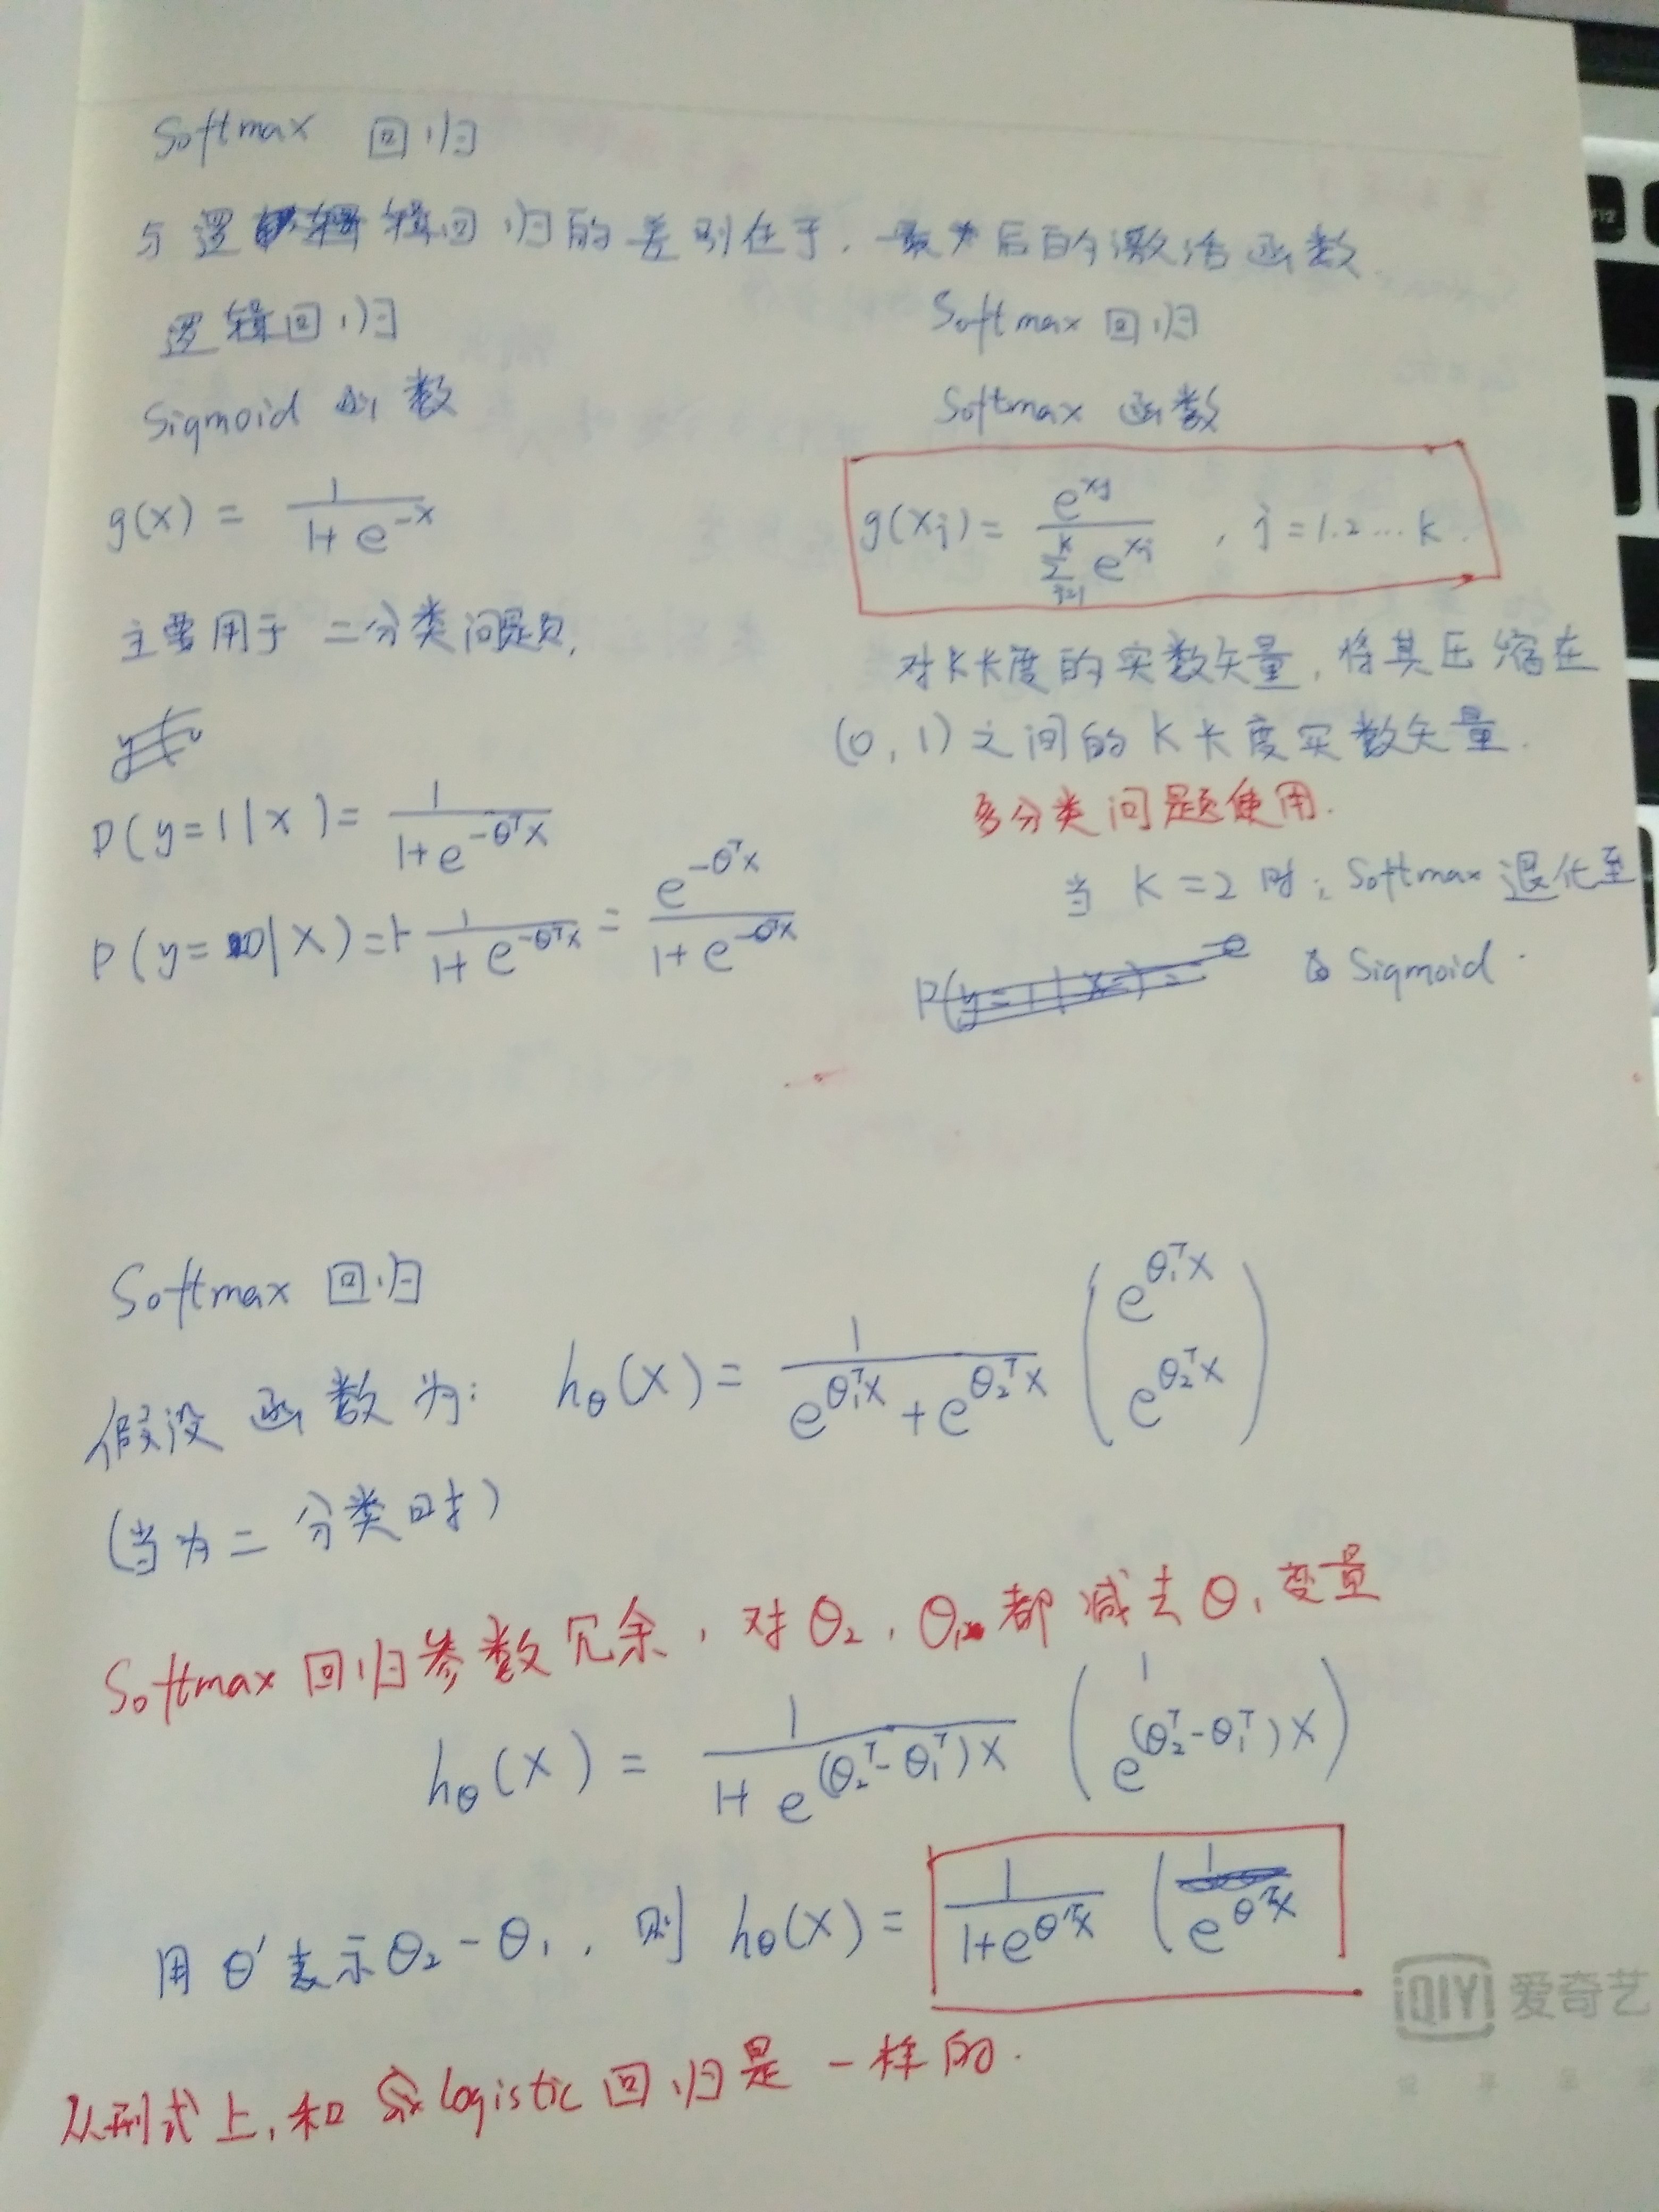 Softmax 回归
与逻辑回归的差别在于,最后的激活函数
逻辑回归
Sigmoid 函数
g(x) = 1 / (1+e^{-x})
主要用于二分类问题,
P(y=1|x) = 1 / (1+e^{-θ^T x})
P(y=0|x) = 1 - 1 / (1+e^{-θ^T x}) = e^{-θ^T x} / (1+e^{-θ^T x})
Softmax 回归
Softmax 函数
g(x_j) = e^{x_j} / Σ_{j=1}^{k} e^{x_j} , j=1.2…k.
对k长度的实数矢量,将其压缩在
(0,1)之间的k长度实数矢量.
多分类问题使用.
当 K=2 时, Softmax 退化至
Sigmoid.
Softmax 回归
假设函数为: h_θ(x) = 1 / (e^{θ_1^T x} + e^{θ_2^T x}) ( e^{θ_1^T x} e^{θ_2^T x} )
(当为二分类时)
Softmax回归参数冗余,对θ_2,θ_1都减去θ_1变量
h_θ(x) = 1 / (1+e^{(θ_2^T-θ_1^T)x}) ( 1 e^{(θ_2^T-θ_1^T)x} )
用θ'表示θ_2-θ_1,则 h_θ(x) = 1 / (1+e^{θ'^T x}) ( 1 e^{θ'^T x}
从形式上,和logistic回归是一样的.
F12
iQIYI 爱奇艺